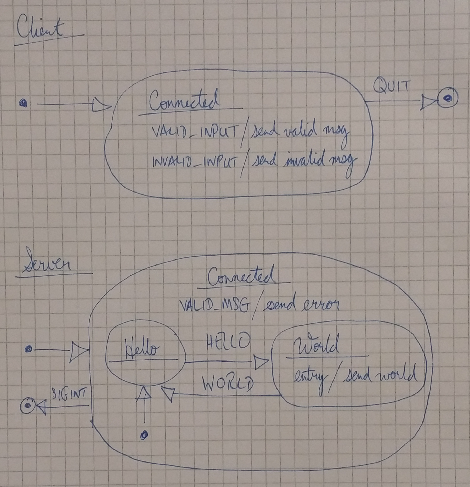 Client
QUIT
Connected
VALID_INPUT/send valid msg
INVALID_INPUT/send invalid msg
Server
Connected
VALID_MSG/send error
Hello
HELLO
World
WORLD
entry/send world
SIGINT